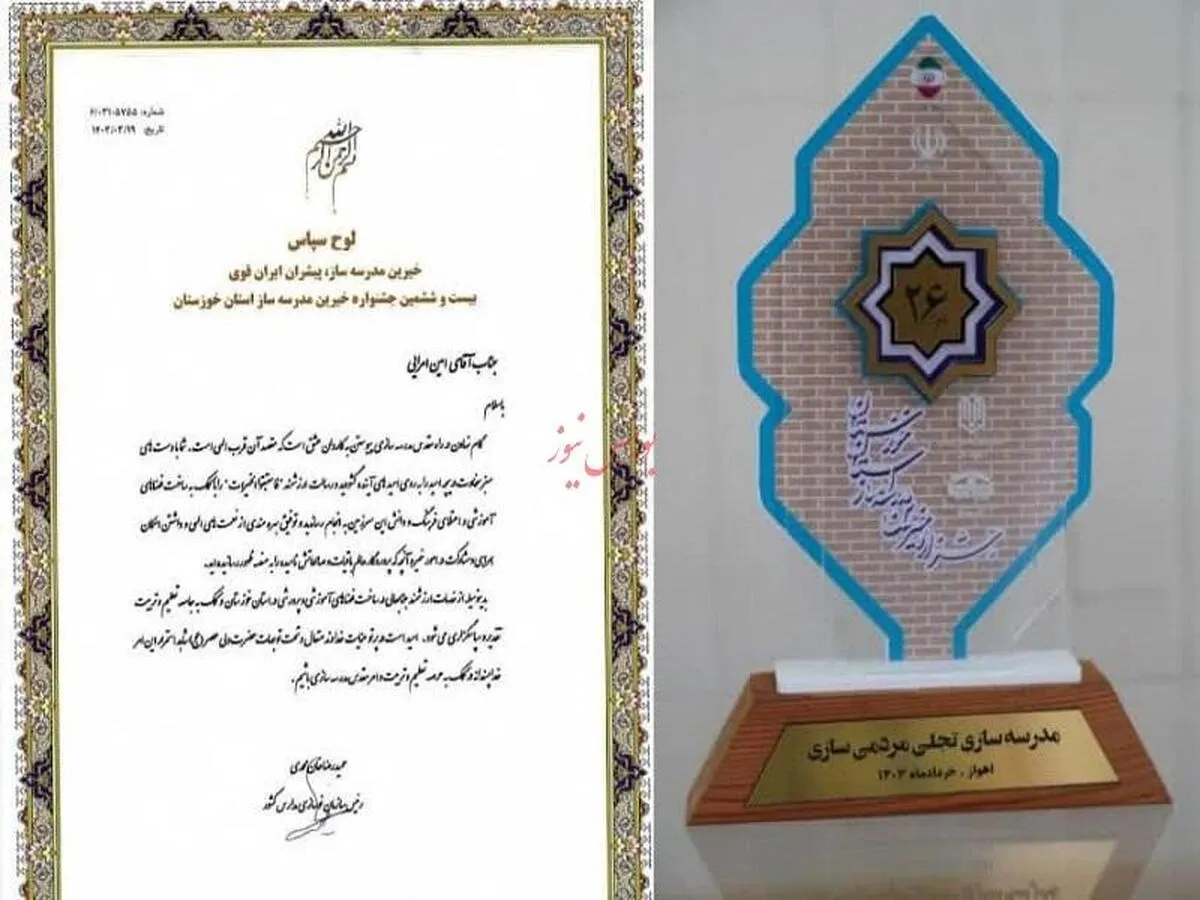 شماره: ۶/۰۳۱۰۵۷۵۵
تاریخ: ۱۴۰۳/۰۳/۱۹
بسم الله الرحمن الرحیم
لوح سپاس
خیرین مدرسه ساز، پیشران ایران قوی
بیست و ششمین جشنواره خیرین مدرسه ساز استان خوزستان
جناب آقای امین امرایی
باسلام
گام نهادن در راه مقدس مدرسه سازی پیوستن به کاروان عشق است که مقصد آن قرب الهی است. شما با دست های
سبز سخاوت دریچه امید را به روی امید های آینده گشودید و رسالت ارزشمند "فاستبقوا الخیرات" را با کمک به ساخت فضاهای
آموزشی و اعتلای فرهنگ و دانش این سرزمین به انجام رساندید و توفیق بهره مندی از نعمت های الهی و داشتن امکان
همراهی و مشارکت در امور خیر و آنچه که پروردگار عالم باقیات و صالحاتش نامیده را به منصه ظهور رسانده اید.
بدینوسیله از خدمات ارزشمند جنابعالی در ساخت فضاهای آموزشی و پرورشی در استان خوزستان و کمک به جامعه تعلیم و تربیت
تقدیر و سپاسگزاری می شود. امید است در پرتو عنایات خداوند متعال و تحت توجهات حضرت ولی عصر (عج) شاهد استمرار این امر
خداپسندانه در کمک به عرصه تعلیم و تربیت و امر مقدس مدرسه سازی باشیم.
حمیدرضا خان محمدی
رئیس سازمان نوسازی مدارس کشور
بورس نیوز
۲۶
جشنواره خیرین مدرسه ساز استان خوزستان
مدرسه سازی تجلی مردمی سازی
اهواز ، خردادماه ۱۴۰۳